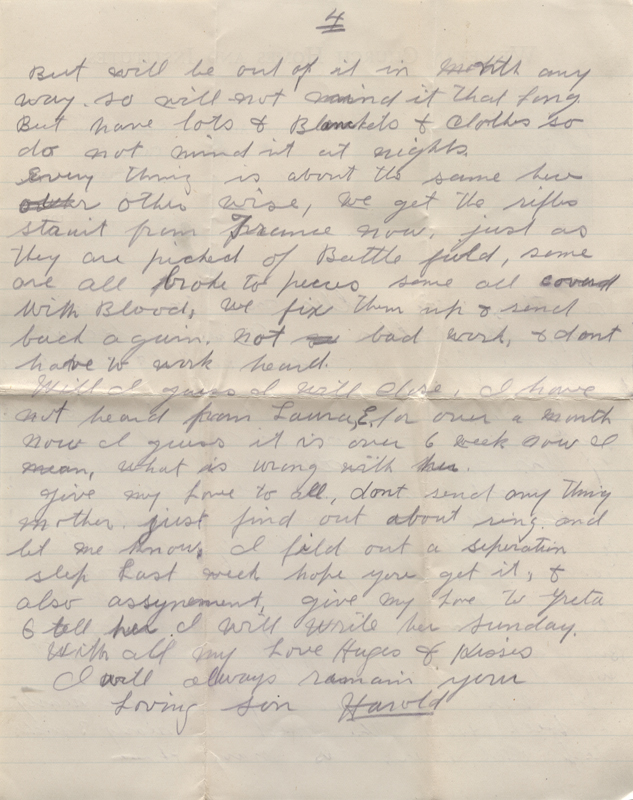 4
But will be out of it in month any
way. so will not mind it that long
But have lots & Blankets & Clothes so
do not mind it at nights.
Every thing is about the same here
other wise, we get the rifles
strait from France now, just as
they are picked of Battle field, some
are all broke to peces some all coverd
With Blood, We fix them up & send
back again. not bad work, & dont
have to work heard.
Well I guess I will Close, I have
not heard from Laura E. for over a month
now I guess it is over 6 week now I
mean, what is wrong with her.
Give my Love to all, dont send any thing
mother just find out about ring and
let me know, I fild out a seperation
slip Last week hope you get it, &
also assynement, give my Love to Greta
& tell her I will write her Sunday.
With all my Love Huges & Kisses
I will always remain your
Loving Son Harold